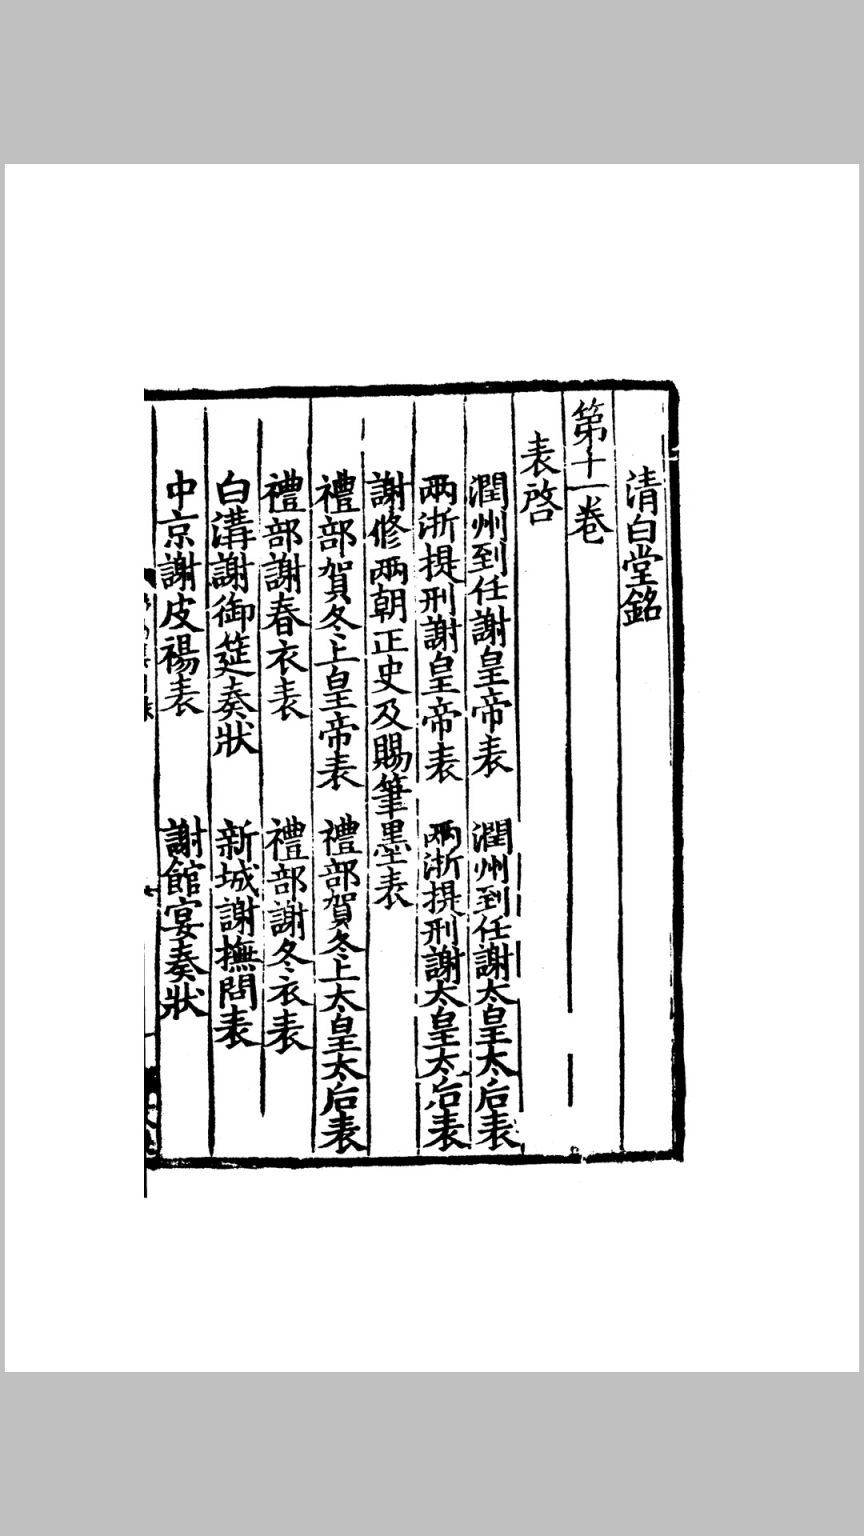 清白堂銘
第十一卷
表啓
潤州到任謝皇帝表　潤州到任謝太皇太后表
兩浙提刑謝皇帝表　兩浙提刑謝太皇太后表
謝修兩朝正史及賜筆墨表
禮部賀冬上皇帝表　禮部賀冬上太皇太后表
禮部謝春衣表　禮部謝冬衣表
白溝謝御筵奏狀　新城謝撫問表
中京謝皮褐表　謝館宴奏狀